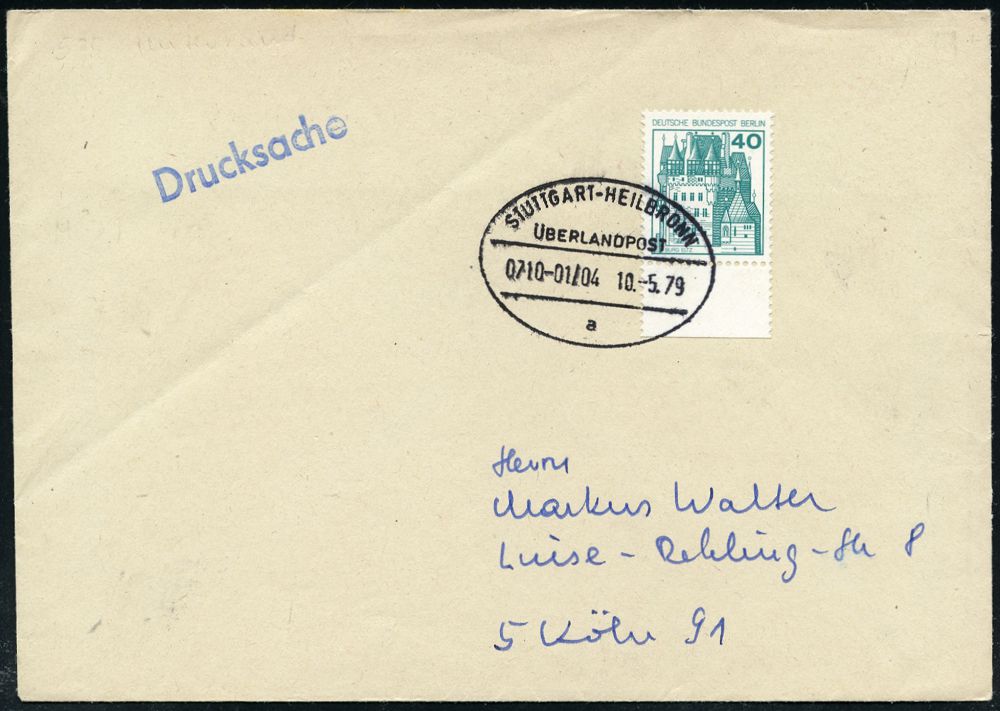 Drucksache
DEUTSCHE BUNDESPOST BERLIN
40
BURG ELTZ
STUTTGART-HEILBRONN
ÜBERLANDPOST
0710-01/04 10.-5.79
a
Herrn
Markus Walter
Luise-
-Str 8
5 Köln 91